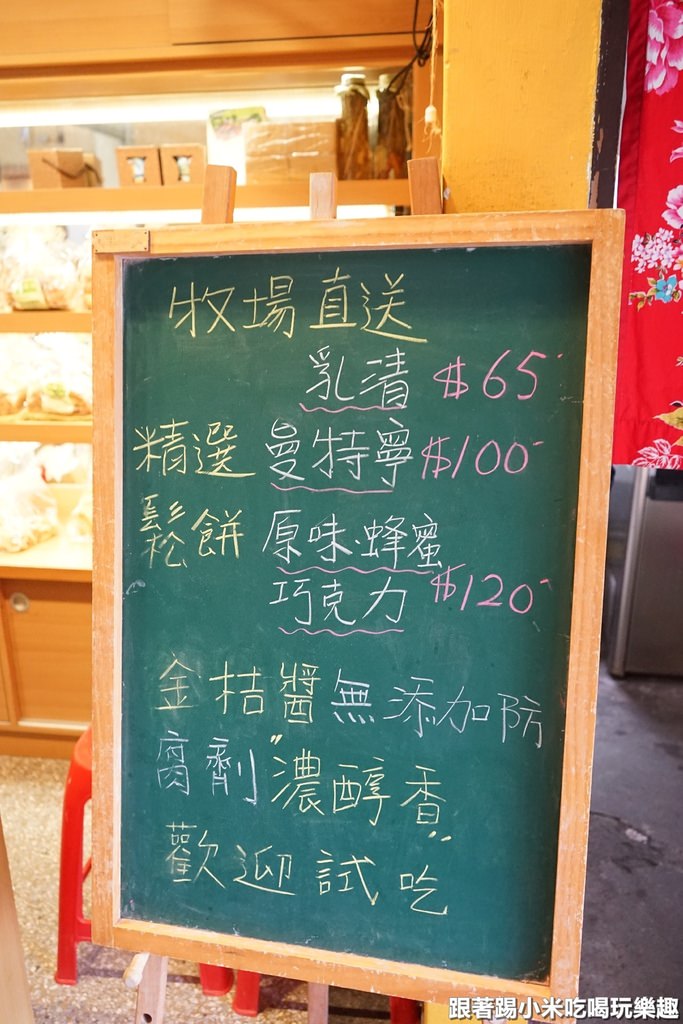 牧場直送
乳清 $65-
精選 曼特寧 $100-
鬆餅 原味.蜂蜜
巧克力 $120-
金桔醬無添加防
腐劑"濃醇香"
歡迎試吃
跟著踢小米吃喝玩樂趣